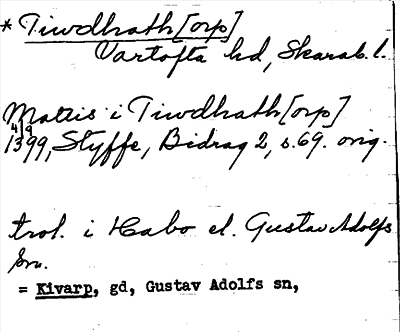 * Tiwdhrath[orp]
Vartofta hd, Skarab. l.
Mattis i Tiwdhrath[orp]
4/9
1399, Styffe, Bidrag 2, s. 69. orig.
trol. i Habo el. Gustav Adolfs
sn.
= Kivarp, gd, Gustav Adolfs sn,